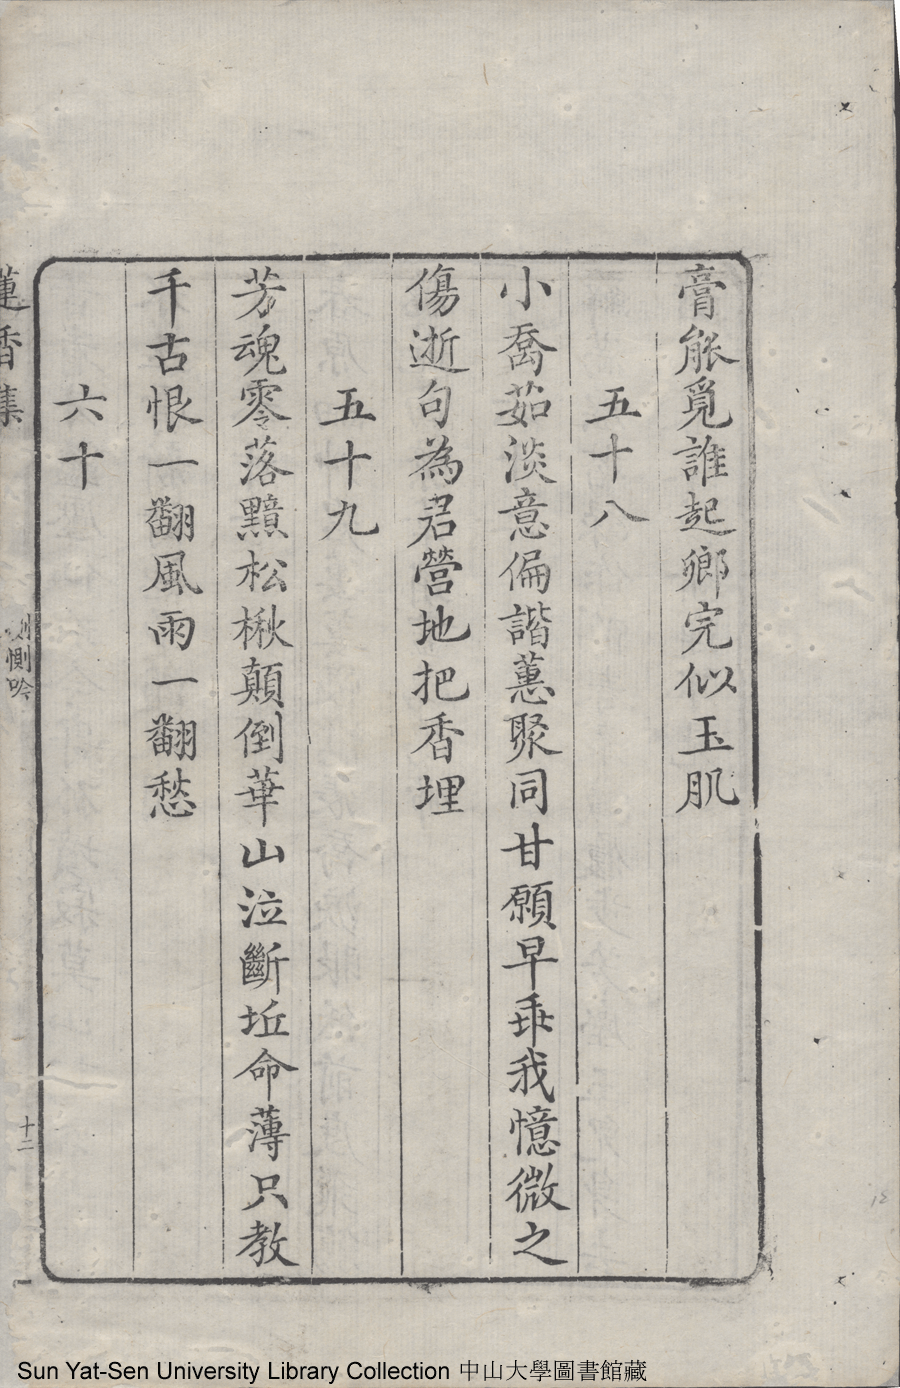 膏能覓誰起鄉完似玉肌
五十八
小喬茹淡意偏諧蕙聚同甘願早乖我憶微之
傷逝句為君營地把香埋
五十九
芳魂零落黯松楸顛倒華山泣斷坵命薄只教
千古恨一翻風雨一翻愁
六十
蓮香集
惻惻吟
十二
Sun Yat-Sen University Library Collection 中山大學圖書館藏